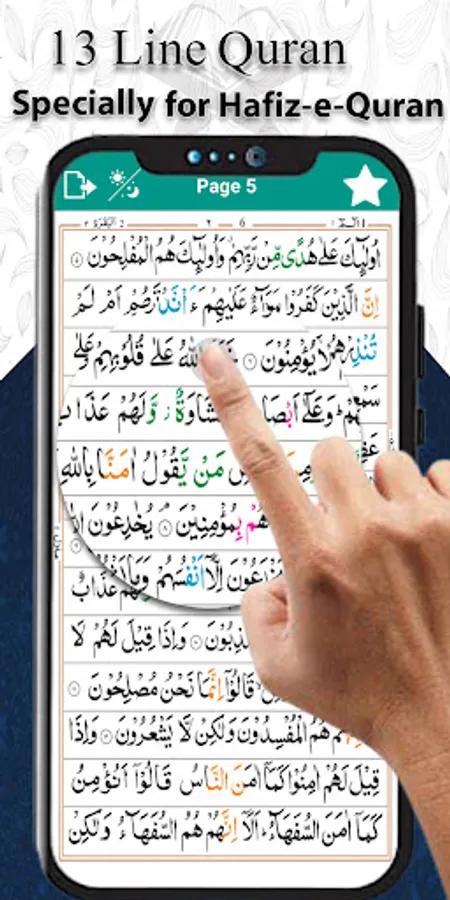 13 Line Quran
Specially for Hafiz-e-Quran
Page 5
اُولٰٓئِكَ عَلٰى هُدًى مِّنْ رَّبِّهِمْ وَاُولٰٓئِكَ هُمُ الْمُفْلِحُوْنَ
اِنَّ الَّذِيْنَ كَفَرُوْا سَوَآءٌ عَلَيْهِمْ ءَاَنْذَرْتَهُمْ اَمْ لَمْ
تُنْذِرْهُمْ لَا يُؤْمِنُوْنَ ۶ اللّٰهُ عَلٰى قُلُوْبِهِمْ وَعَلٰى
سَمْعِهِمْ وَعَلٰٓى اَبْصَا شَاوَةٌ وَّلَهُمْ عَذَابٌ
مَنْ يَّقُوْلُ اٰمَنَّا بِاللّٰهِ
هُمْ بِمُؤْمِنِيْنَ ۸ يُخٰدِعُوْنَ
دَعُوْنَ اِلَّاۤ اَنْفُسَهُمْ وَمَا
عَذَابٌ
ذِبُوْنَ ۱۰ وَاِذَا قِيْلَ لَهُمْ لَا
قَالُوْۤا اِنَّمَا نَحْنُ مُصْلِحُوْنَ
هُمُ الْمُفْسِدُوْنَ وَلٰكِنْ لَّا يَشْعُرُوْنَ وَاِذَا
قِيْلَ لَهُمْ اٰمِنُوْا كَمَاۤ اٰمَنَ النَّاسُ قَالُوْۤا اَنُؤْمِنُ
كَمَاۤ اٰمَنَ السُّفَهَآءُ اَلَاۤ اِنَّهُمْ هُمُ السُّفَهَآءُ وَلٰكِنْ